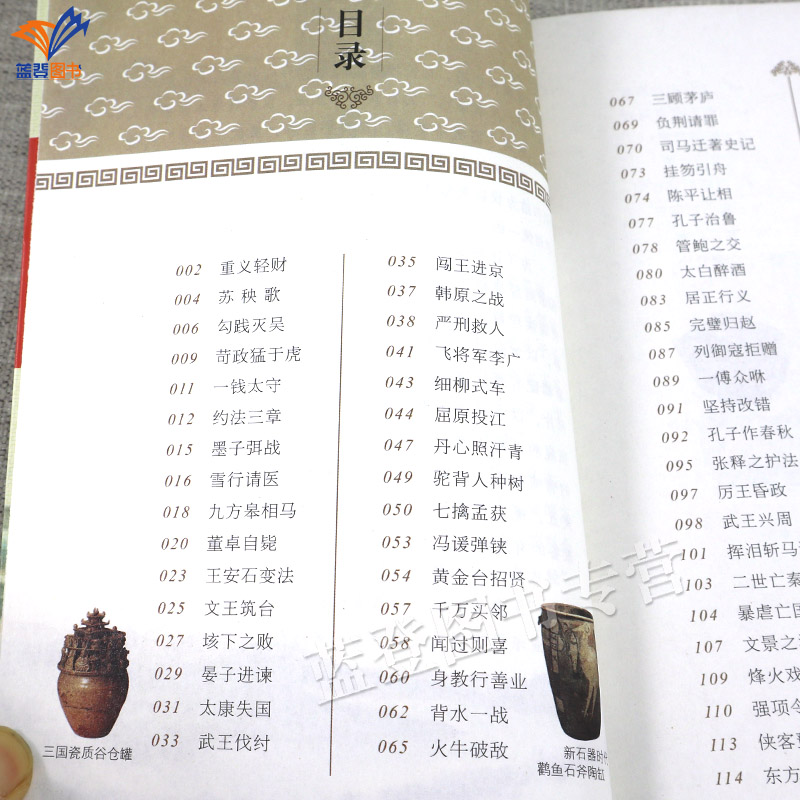 蓝登图书
目录
002 重义轻财
004 苏秧歌
006 勾践灭吴
009 苛政猛于虎
011 一钱太守
012 约法三章
015 墨子弭战
016 雪行请医
018 九方皋相马
020 董卓自毙
023 王安石变法
025 文王筑台
027 垓下之败
029 晏子进谏
031 太康失国
033 武王伐纣
三国瓷质谷仓罐
035 闯王进京
037 韩原之战
038 严刑救人
041 飞将军李广
043 细柳式车
044 屈原投江
047 丹心照汗青
049 驼背人种树
050 七擒孟获
053 冯谖弹铗
054 黄金台招贤
057 千万买邻
058 闻过则喜
060 身教行善业
062 背水一战
065 火牛破敌
新石器时代
鹳鱼石斧陶缸
067 三顾茅庐
069 负荆请罪
070 司马迁著史记
073 挂笏引舟
074 陈平让相
077 孔子治鲁
078 管鲍之交
080 太白醉酒
083 居正行义
085 完璧归赵
087 列御寇拒赠
089 一傅众咻
091 坚持改错
092 孔子作春秋
095 张释之护法
097 厉王昏政
098 武王兴周
101 挥泪斩马
103 二世亡秦
104 暴虐亡国
107 文景之
109 烽火戏
110 强项令
113 侠客
114 东方
蓝登图书专营